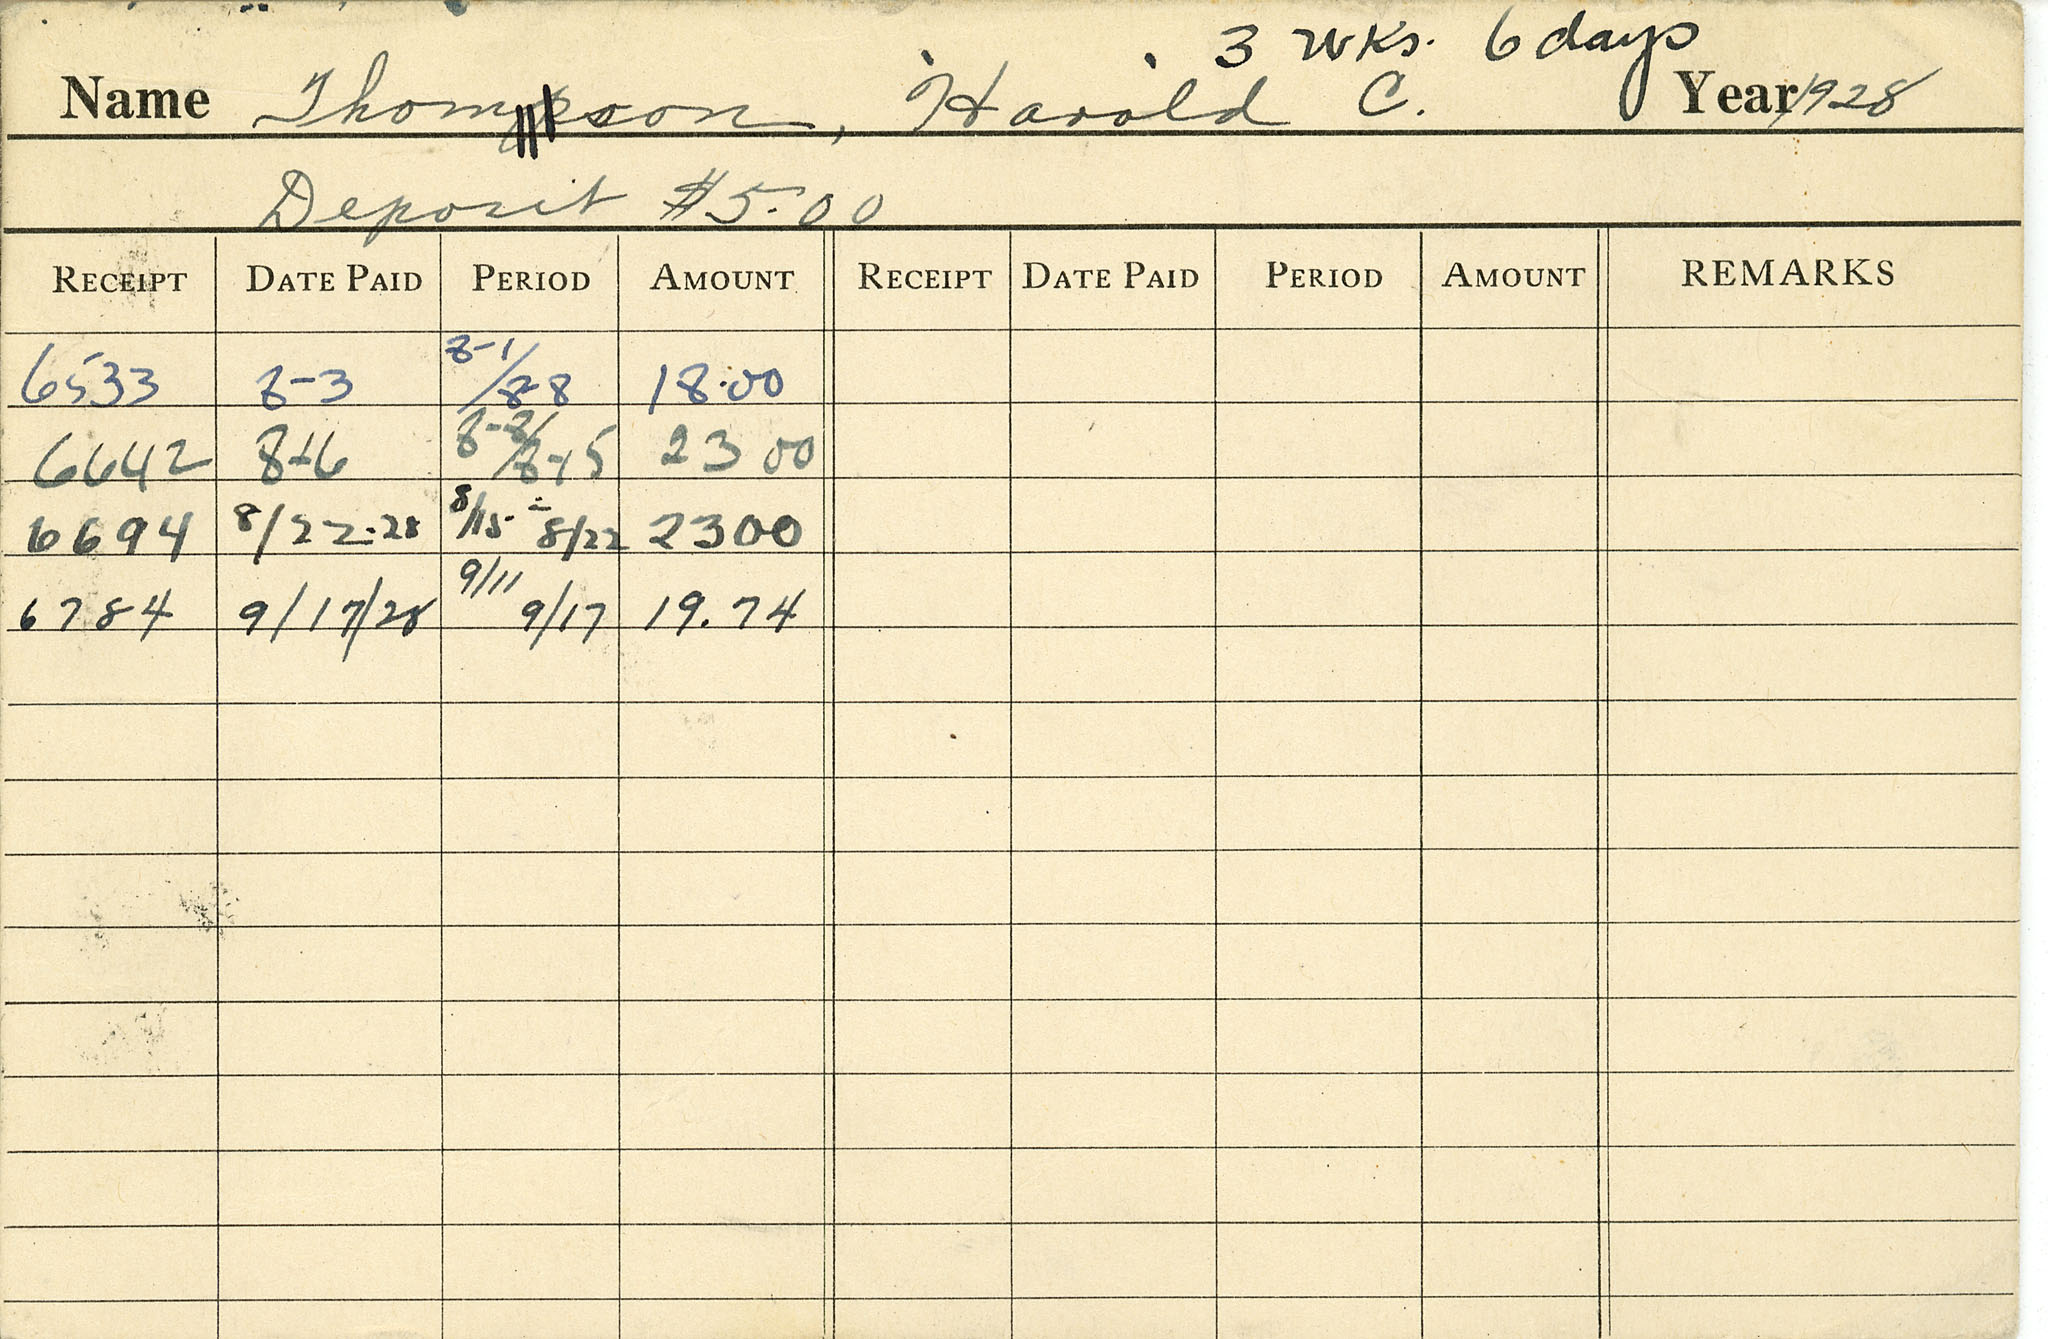 3 wks. 6 days
Name Thomson, Harold C. Year 1928
Deposit $5.00
RECEIPT DATE PAID PERIOD AMOUNT RECEIPT DATE PAID PERIOD AMOUNT REMARKS
6533 8-3 8-1/8-8 18.00
6642 8-16 8-8/8-15 23 00
6694 8/22-28 8/15 - 8/22 2300
6784 9/17/28 9/11 9/17 19.74